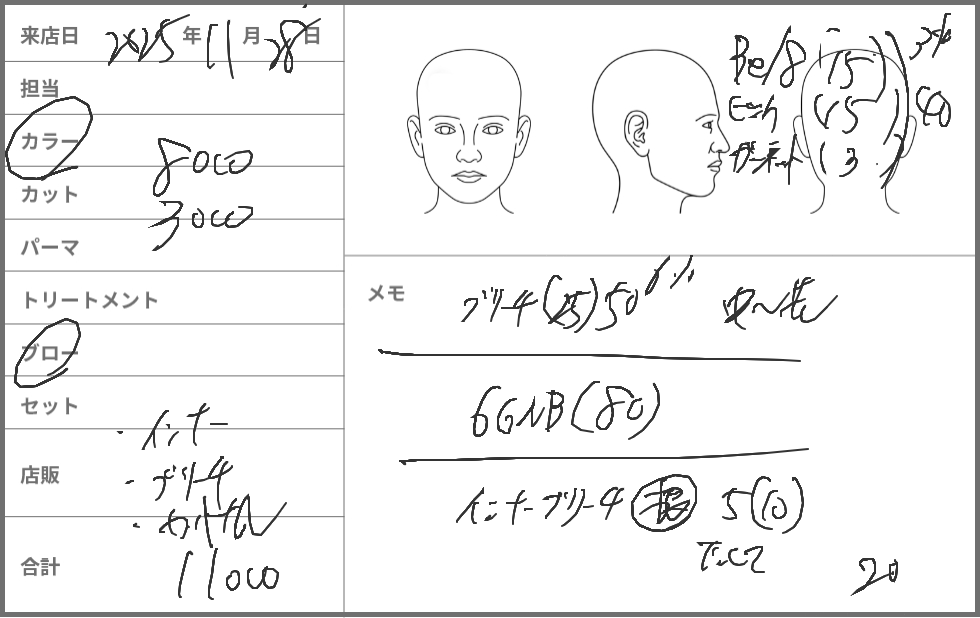 来店日 2025年11月28日
担当
カラー 8000
カット 3000
パーマ
トリートメント
ブロー
セット
・インナー
店販 ・ブリーチ
合計 11000
Be/8 (15) 3%
ピンク (15) 40
ガーネット (3)
メモ
ブリーチ(25)50 6% 中〜先
6GNB(80)
インナーブリーチ 根 5(10)
20